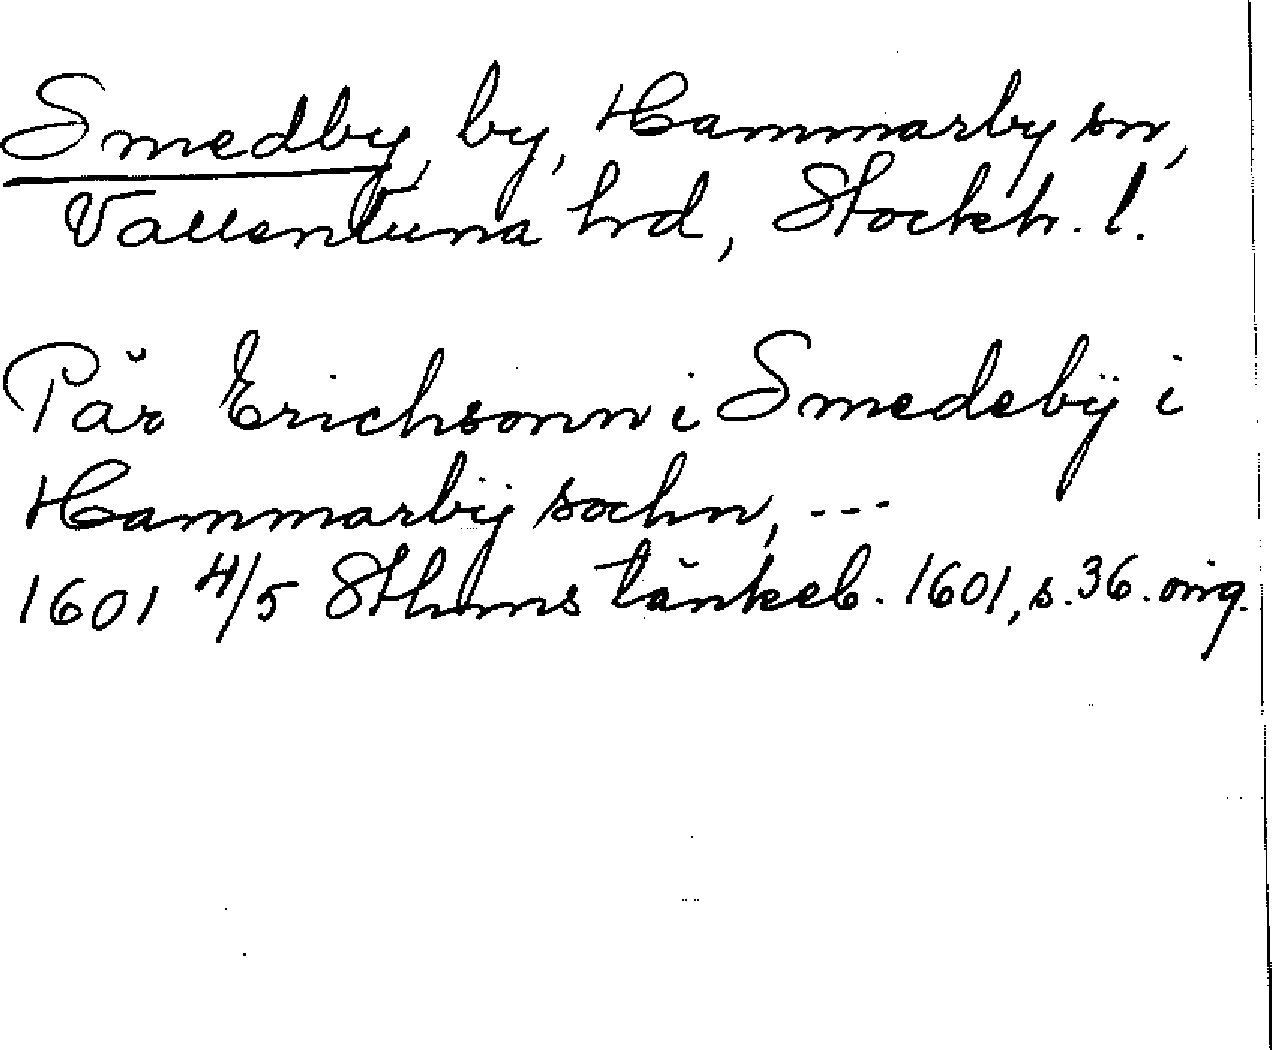 Smedby, by, Hammarby sn,
Vallentuna hrd, Stockh. l.
Pär Erichsonn i Smedebÿ i
Hammarbÿ sochn, ---
1601 4/5 Sthms tänkeb. 1601, s. 36. orig.